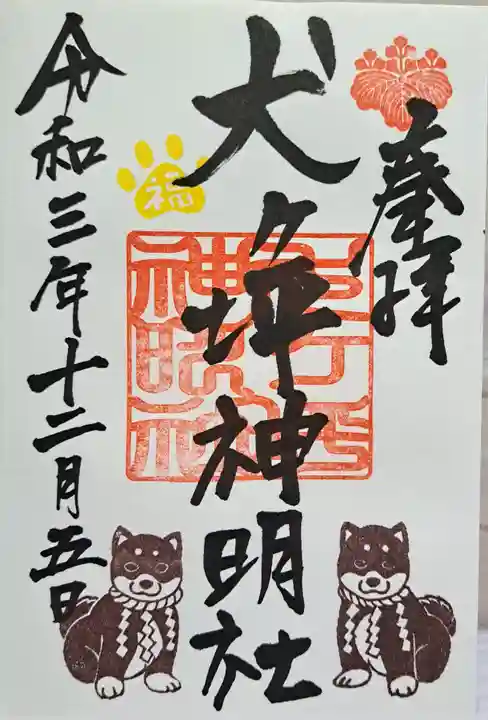 奉拝
犬ヶ坪神明社
令和三年十二月五日
福